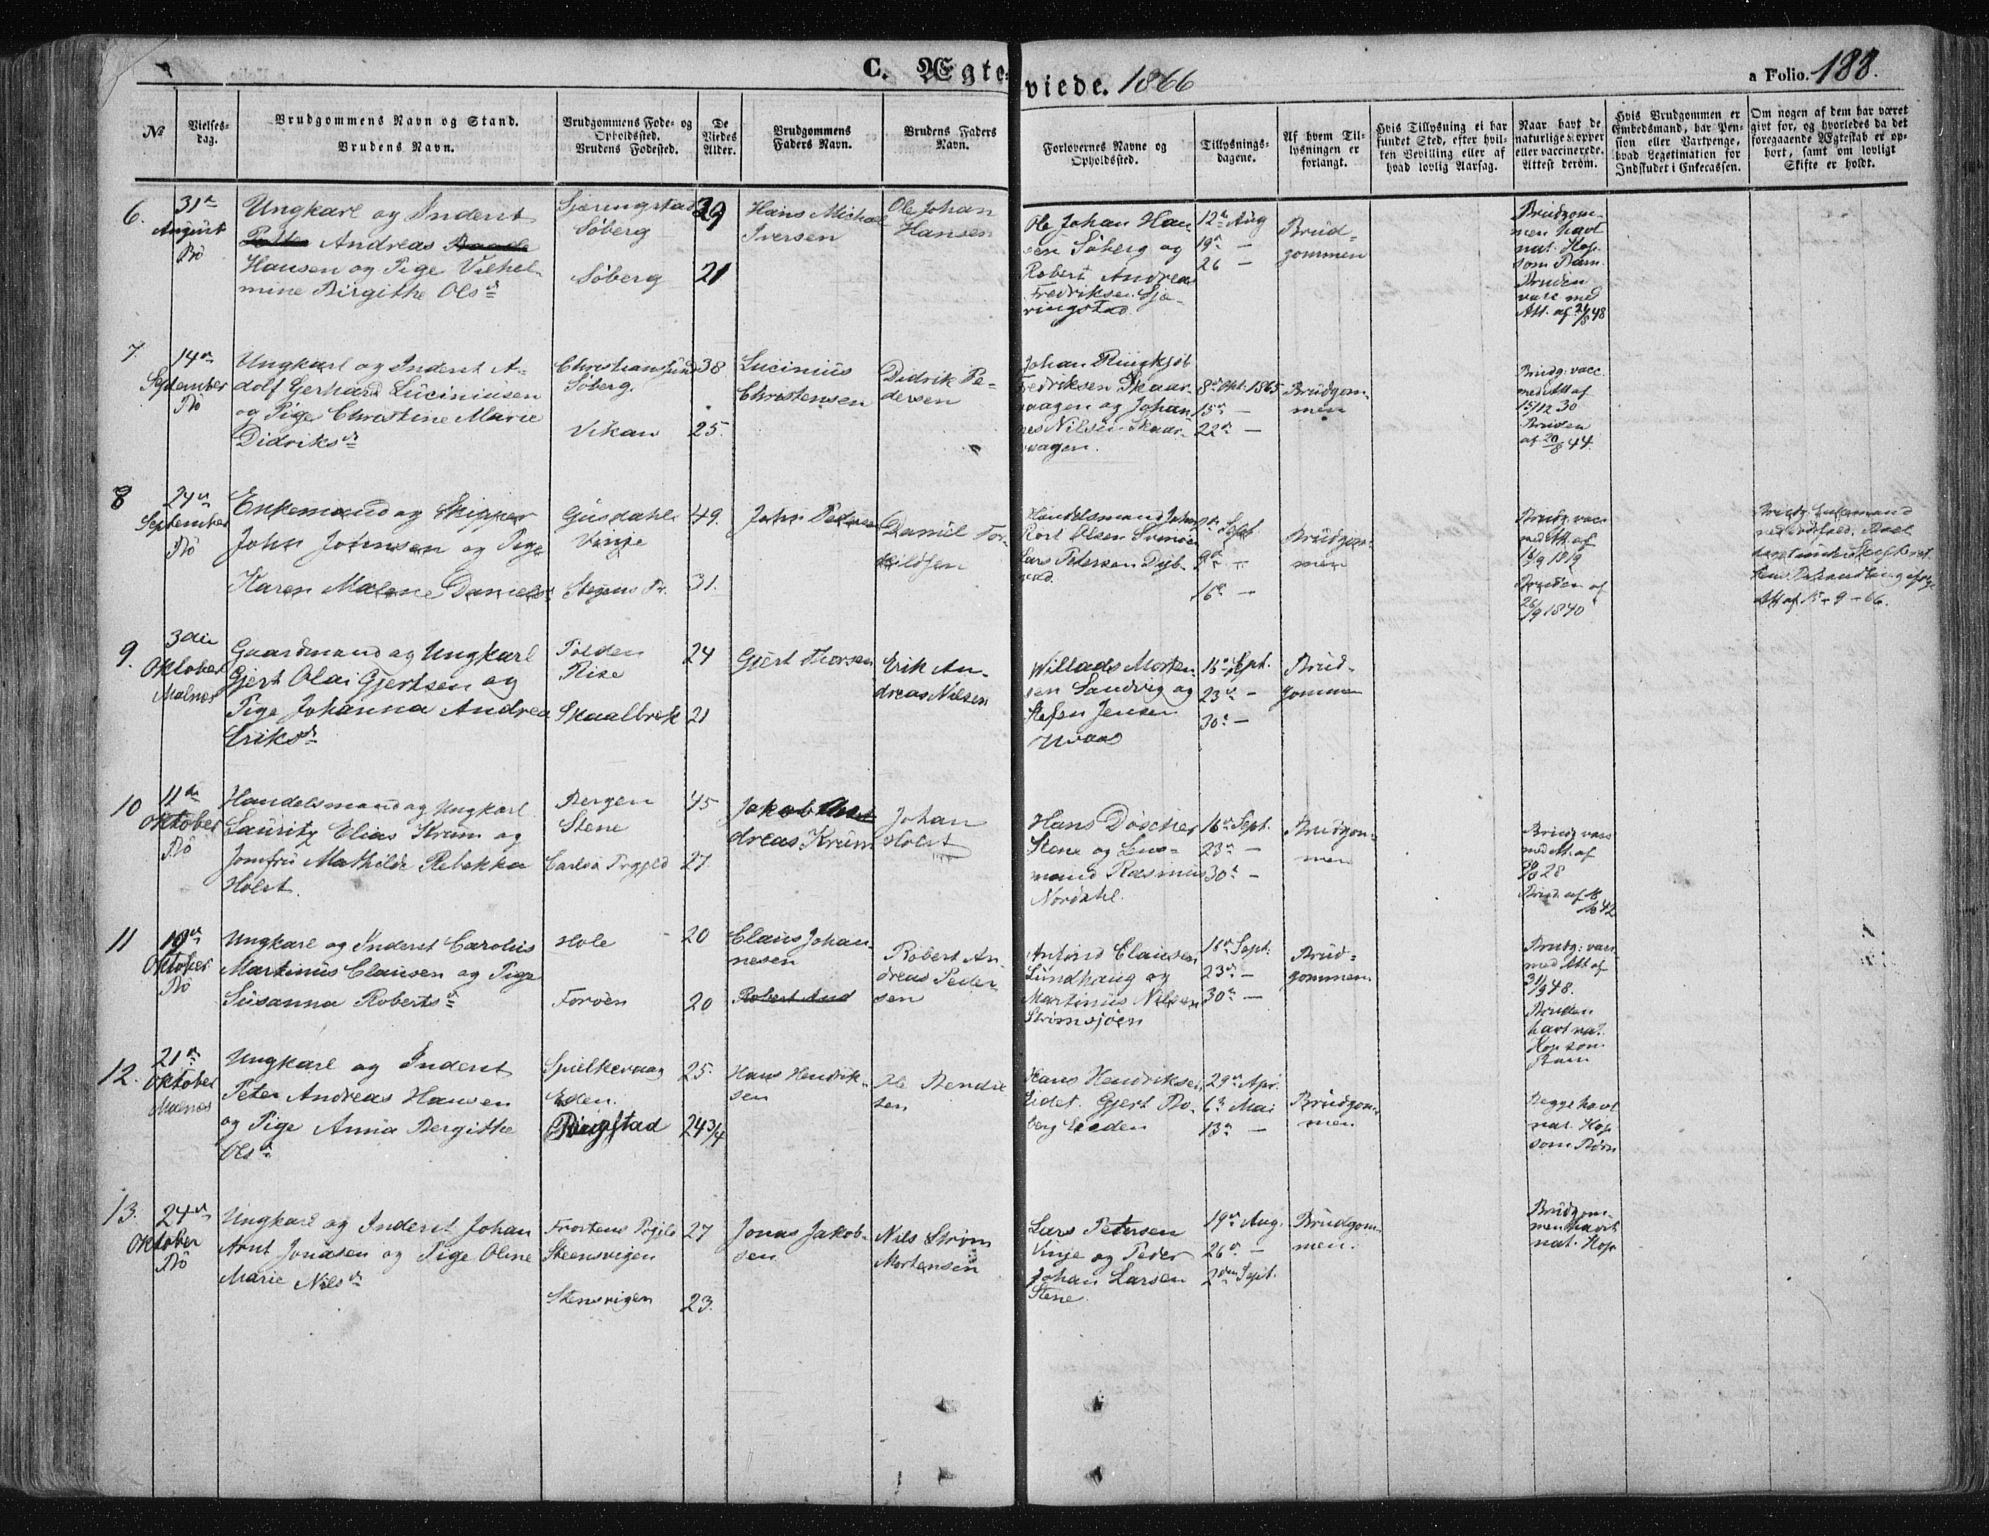 C. Ægteviede. 1866
a Folio. 188.
№
Vielsesdag.
Brudgommens Navn og Stand.
Brudens Navn.
Brudgommens Føde- og Opholdssted.
Brudens Fødested.
De Viedes Alder.
Brudgommens Faders Navn.
Brudens Faders Navn.
Forlovernes Navne og Opholdssted.
Tillysningsdagene.
Af hvem Tillysningen er forlangt.
Hvis Tillysning ei har fundet Sted, efter hvilken Bevilling eller af hvad lovlig Aarsag.
Naar havt de naturlige Kopper eller vaccinerede. Attest derom.
Hvis Brudgommen er Embedsmand, har Pension eller Vartpenge, hvad Legitimation for Indskudet i Enkecassen.
Om nogen af dem har været gift før, og hvorledes da det foregaaende Ægteskab er ophørt, samt om lovligt Skifte er holdt.
6.
31te
August
Bø
Ungkarl og Inderst
Andreas
Hansen og Pige Vilhel-
mine Birgithe Olsd
Søberg
Søberg
29
21
Hans Michael
Iversen
Ole Johan
Hansen
Ole Johan Han-
sen Søberg og
Robert Andreas
Fredriksen Sjø-
ringstad.
12te Aug
19de —
26 —
Brud-
gommen
Brudgom-
men havt
nat. Kop.
som Barn
Bruden
vacc med
Att. af 21/8 48
7.
14de
September
Bø
Ungkarl og Inderst A-
dolf Gerhard Luciniusen
og Pige Christine Marie
Didriksd
Christiansund
Søberg.
Vikan
38
25.
Lucinius
Christensen
Didrik Pe-
dersen
Johan Ringkjøb
Fredriksen Skaar-
vaagen og Johan-
nes Nilsen Skaar-
vaagen.
8de Okt. 1865
15de —
22de —
Brudgom-
men
Brudg. vacc
med Att af
15/12 30
Bruden
af 20/8 44.
8
24de
September
Bø
Enkemand og Skipper
John Johnsen og Pige
Karen Malene Danielsd
Gusdahl
Vinje
49.
31.
John Pedersen
Daniel Tor-
kildsen
Handelsmand Johan
Kort Olsen
Lars Petersen
2de Sept.
9de —
16de —
Brudgom-
men
Brudg. vacc
med Att. af
16/9 1819
Bruden af
26/9 1840
Brudg. Enkemand
Att af 15 - 9 - 66.
9.
3die
Oktober
Malnes
Gaardmand og Ungkarl
Gjert Olai Gjertsen og
Pige Johanna Andrea
Eriksd
Folden
Rise
Skaalbrek
24
21
Gjert Thorsen
Erik An-
dreas Nilsen
Willads Morten-
sen Sandvig og
Stefen Jensen
Uvaas
16de Sept.
23de —
30te —
Brud-
gommen
10
11te
Oktober
Bø
Handelsmand og Ungkarl
Lauritz Elias Krum og
Jomfru Mathilde Rebekka
Holst.
Bergen
Stene
45
27.
Jakob An-
dreas Krum
Johan
Holst
Hans Døscher
Stene og Lens-
mand Rasmus
Nordahl.
16de Sept.
23de —
30te —
Brudgom-
men
Brudg vacc
med Att. af
28
11
Oktober
Bø
Ungkarl og Inderst Carolus
Martinus Clausen og Pige
Susanna Robertsd
Hole
Forøen
20
20
Claus Johan-
nesen
Robert And
Robert An-
dreas Peder-
sen
Antond Clausen
Lundhaug og
Martinus Nilsen
Strømsjøen
16de Sept.
23de —
30te —
Brud-
gommen.
Brudg: vacc
med Att af
31/9 48.
Bruden
havt nat.
Kop som
Barn
12.
21de
Oktober
Malnes
Ungkarl og Inderst
Peter Andreas Hansen
og Pige Anna Bergithe
Olsd
Spilkevaag
Eden.
Ringstad
25.
24 3/4
Hans Hendrik-
sen
Ole Bendik-
sen
Hans Hendriksen
Eidet. Gjert Ro-
berg Eeden
29de Apr.
6te Mai
13de —
Brudgom-
men
Begge havt
nat. Kop
som Børn
13.
24de
Oktober
Bø
Ungkarl og Inderst Johan
Arnt Jonasen og Pige Oline
Marie Nilsd
Steensvigen
Stensvigen
27
23.
Jonas Jakob-
sen
Nils Strøm
Mortensen
Lars Petersen
Vinje og Peder
Johan Larsen
Stene.
19de Aug.
26de —
2den Sept.
Brudgom-
men.
Brudgom-
men havt
nat. Kop